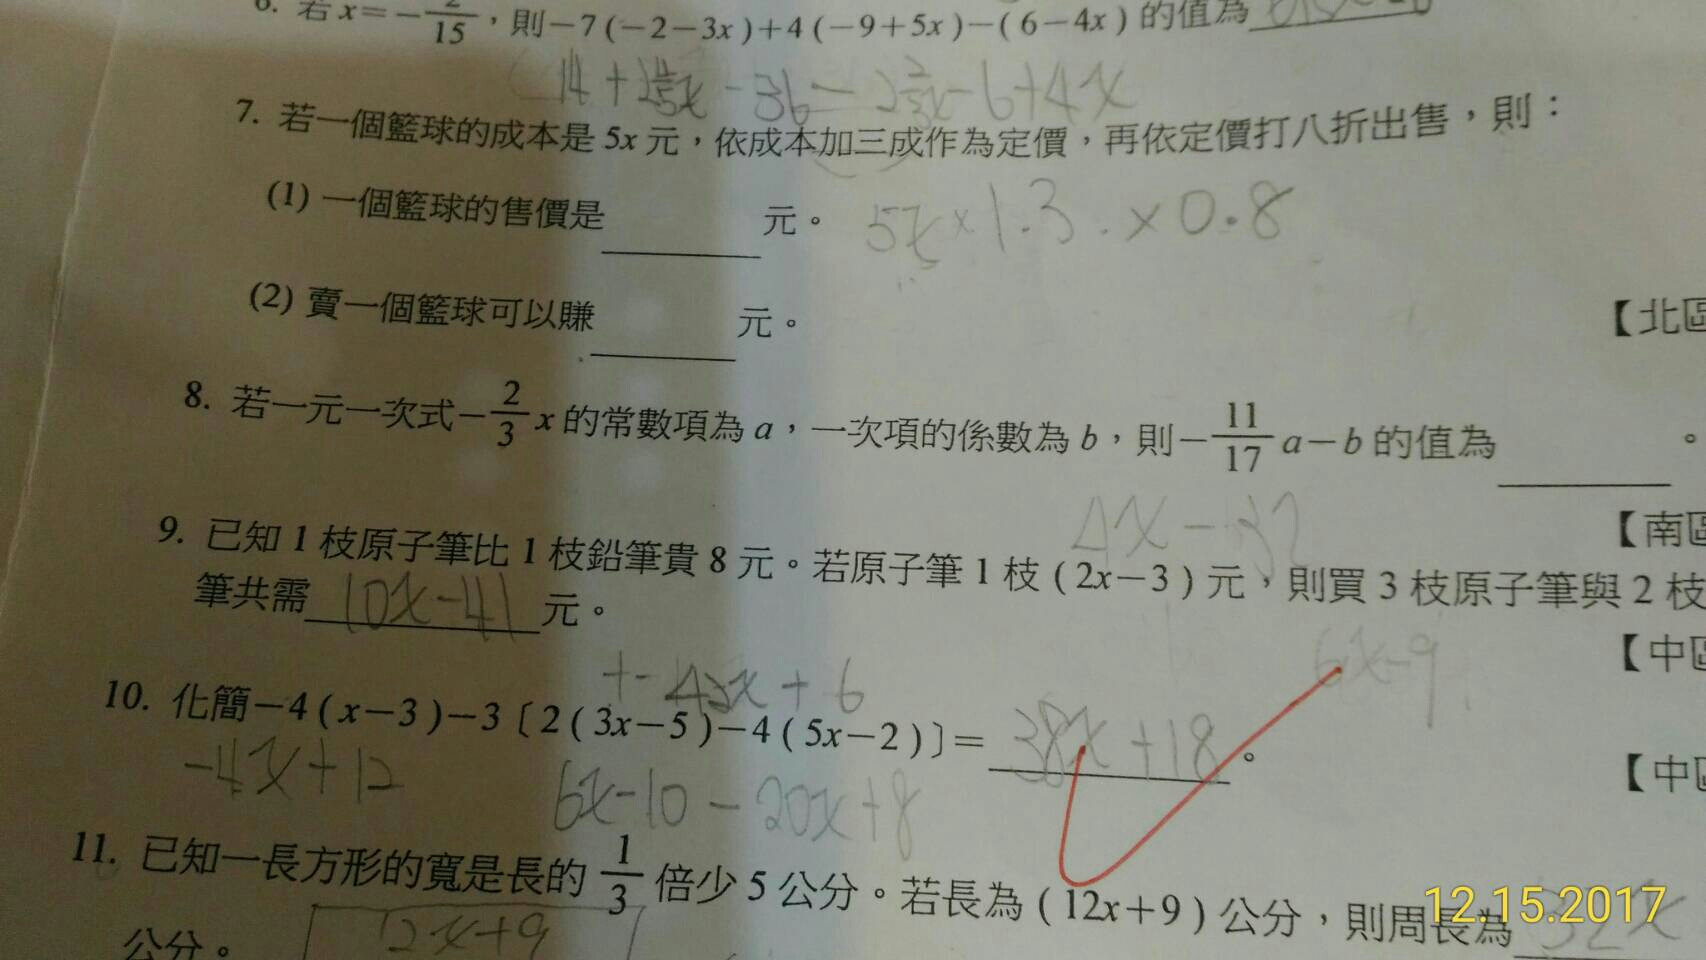 6. 若 x=−2/15，則−7(−2−3x)+4(−9+5x)−(6−4x)的值為
7. 若一個籃球的成本是 5x 元，依成本加三成作為定價，再依定價打八折出售，則：
(1) 一個籃球的售價是　　元。 5x×1.3.×0.8
(2) 賣一個籃球可以賺　　元。
【北區
8. 若一元一次式−2/3 x 的常數項為 a，一次項的係數為 b，則−11/17 a−b 的值為　　。
【南區
4x-
9. 已知 1 枝原子筆比 1 枝鉛筆貴 8 元。若原子筆 1 枝(2x−3)元，則買 3 枝原子筆與 2 枝
筆共需 10x-41 元。
【中區
6x-9
+6
10. 化簡−4(x−3)−3〔2(3x−5)−4(5x−2)〕= 38x+18 。
【中區
-4x+12 6x-10-20x+8
11. 已知一長方形的寬是長的 1/3 倍少 5 公分。若長為(12x+9)公分，則周長為 32x
公分。 12x+9
12.15.2017